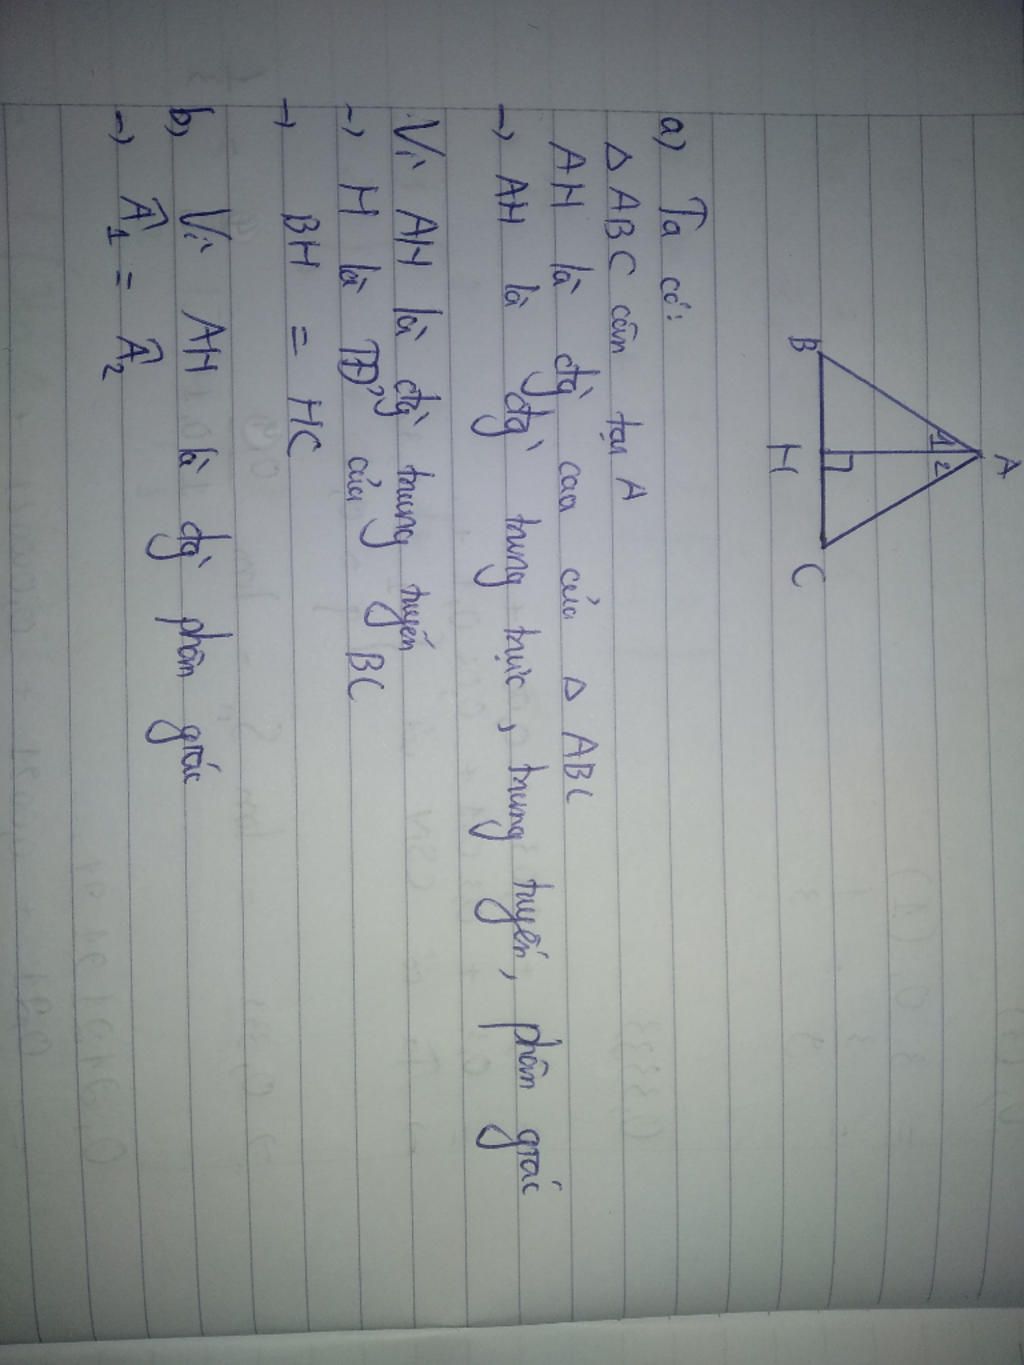 A
1 2
B
H
C
a) Ta có:
Δ ABC cân tại A
AH là đg̀ cao của Δ ABC
→ AH là đg̀ trung trực, trung tuyến, phân giác
Vì AH là đg̀ trung tuyến
→ H là TĐ' của BC
→ BH = HC
b) Vì AH là đg̀ phân giác
→ Â1 = Â2